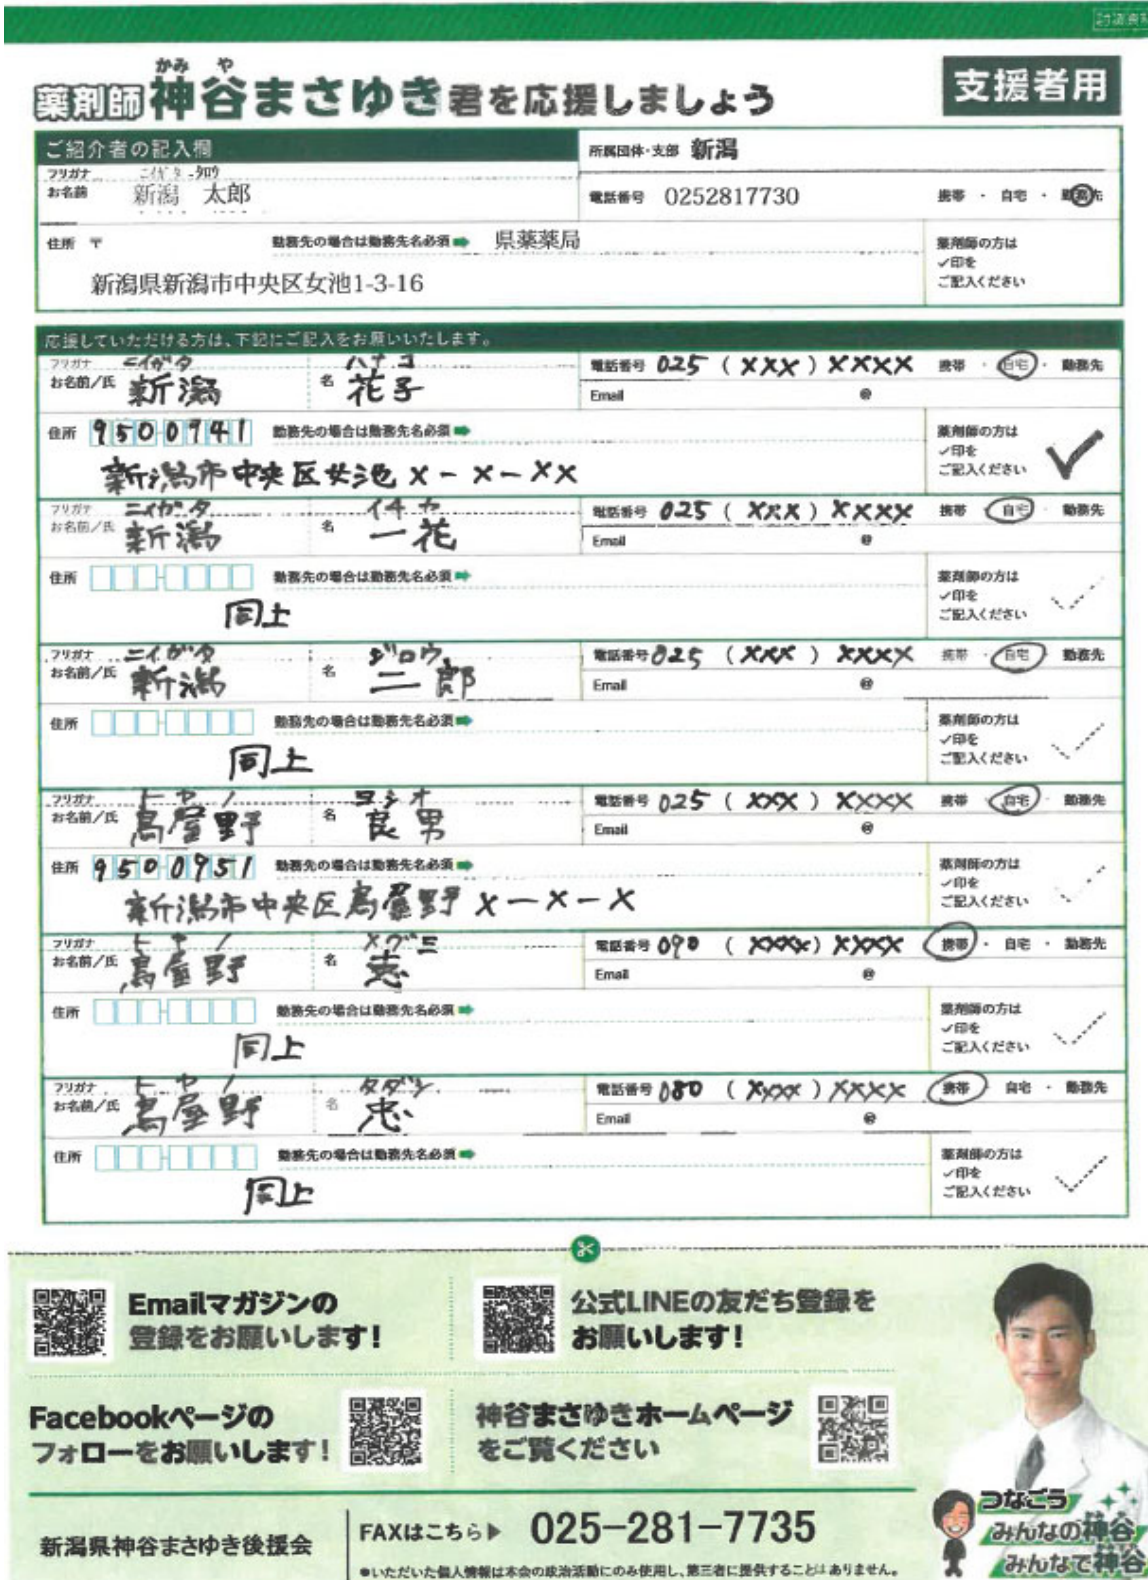 討議資料
かみ や
薬剤師 神谷まさゆき君を応援しましょう
支援者用
ご紹介者の記入欄
所属団体・支部 新潟
フリガナ ニイガタ タロウ
お名前 新潟 太郎
電話番号 0252817730 携帯 ・ 自宅 ・ 勤務先
住所 〒 勤務先の場合は勤務先名必須 県薬薬局
新潟県新潟市中央区女池1-3-16
薬剤師の方は
✓印を
ご記入ください
応援していただける方は、下記にご記入をお願いいたします。
フリガナ ニイガタ ハナコ
お名前/氏 新潟 名 花子
電話番号 025 (XXX) XXXX 携帯 ・ 自宅 ・ 勤務先
Email @
住所 9500941 勤務先の場合は勤務先名必須
新潟市中央区女池 X-X-XX
薬剤師の方は
✓印を
ご記入ください
フリガナ ニイガタ イチカ
お名前/氏 新潟 名 一花
電話番号 025 (XXX) XXXX 携帯 自宅 勤務先
Email @
住所 勤務先の場合は勤務先名必須
同上
薬剤師の方は
✓印を
ご記入ください
フリガナ ニイガタ ジロウ
お名前/氏 新潟 名 二郎
電話番号 025 (XXX) XXXX 携帯 ・ 自宅 勤務先
Email @
住所 勤務先の場合は勤務先名必須
同上
薬剤師の方は
✓印を
ご記入ください
フリガナ トヤノ ヨシオ
お名前/氏 鳥屋野 名 良男
電話番号 025 (XXX) XXXX 携帯 自宅 ・ 勤務先
Email @
住所 9500951 勤務先の場合は勤務先名必須
新潟市中央区鳥屋野 X-X-X
薬剤師の方は
✓印を
ご記入ください
フリガナ トヤノ メグミ
お名前/氏 鳥屋野 名 恵
電話番号 090 (XXXX) XXXX 携帯 ・ 自宅 ・ 勤務先
Email @
住所 勤務先の場合は勤務先名必須
同上
薬剤師の方は
✓印を
ご記入ください
フリガナ トヤノ タダシ
お名前/氏 鳥屋野 名 忠
電話番号 080 (XXXX) XXXX 携帯 自宅 ・ 勤務先
Email @
住所 勤務先の場合は勤務先名必須
同上
薬剤師の方は
✓印を
ご記入ください
Emailマガジンの
登録をお願いします!
公式LINEの友だち登録を
お願いします!
Facebookページの
フォローをお願いします!
神谷まさゆきホームページ
をご覧ください
新潟県神谷まさゆき後援会
FAXはこちら▶ 025-281-7735
●いただいた個人情報は本会の政治活動にのみ使用し、第三者に提供することはありません。
つなごう
みんなの神谷
みんなで神谷